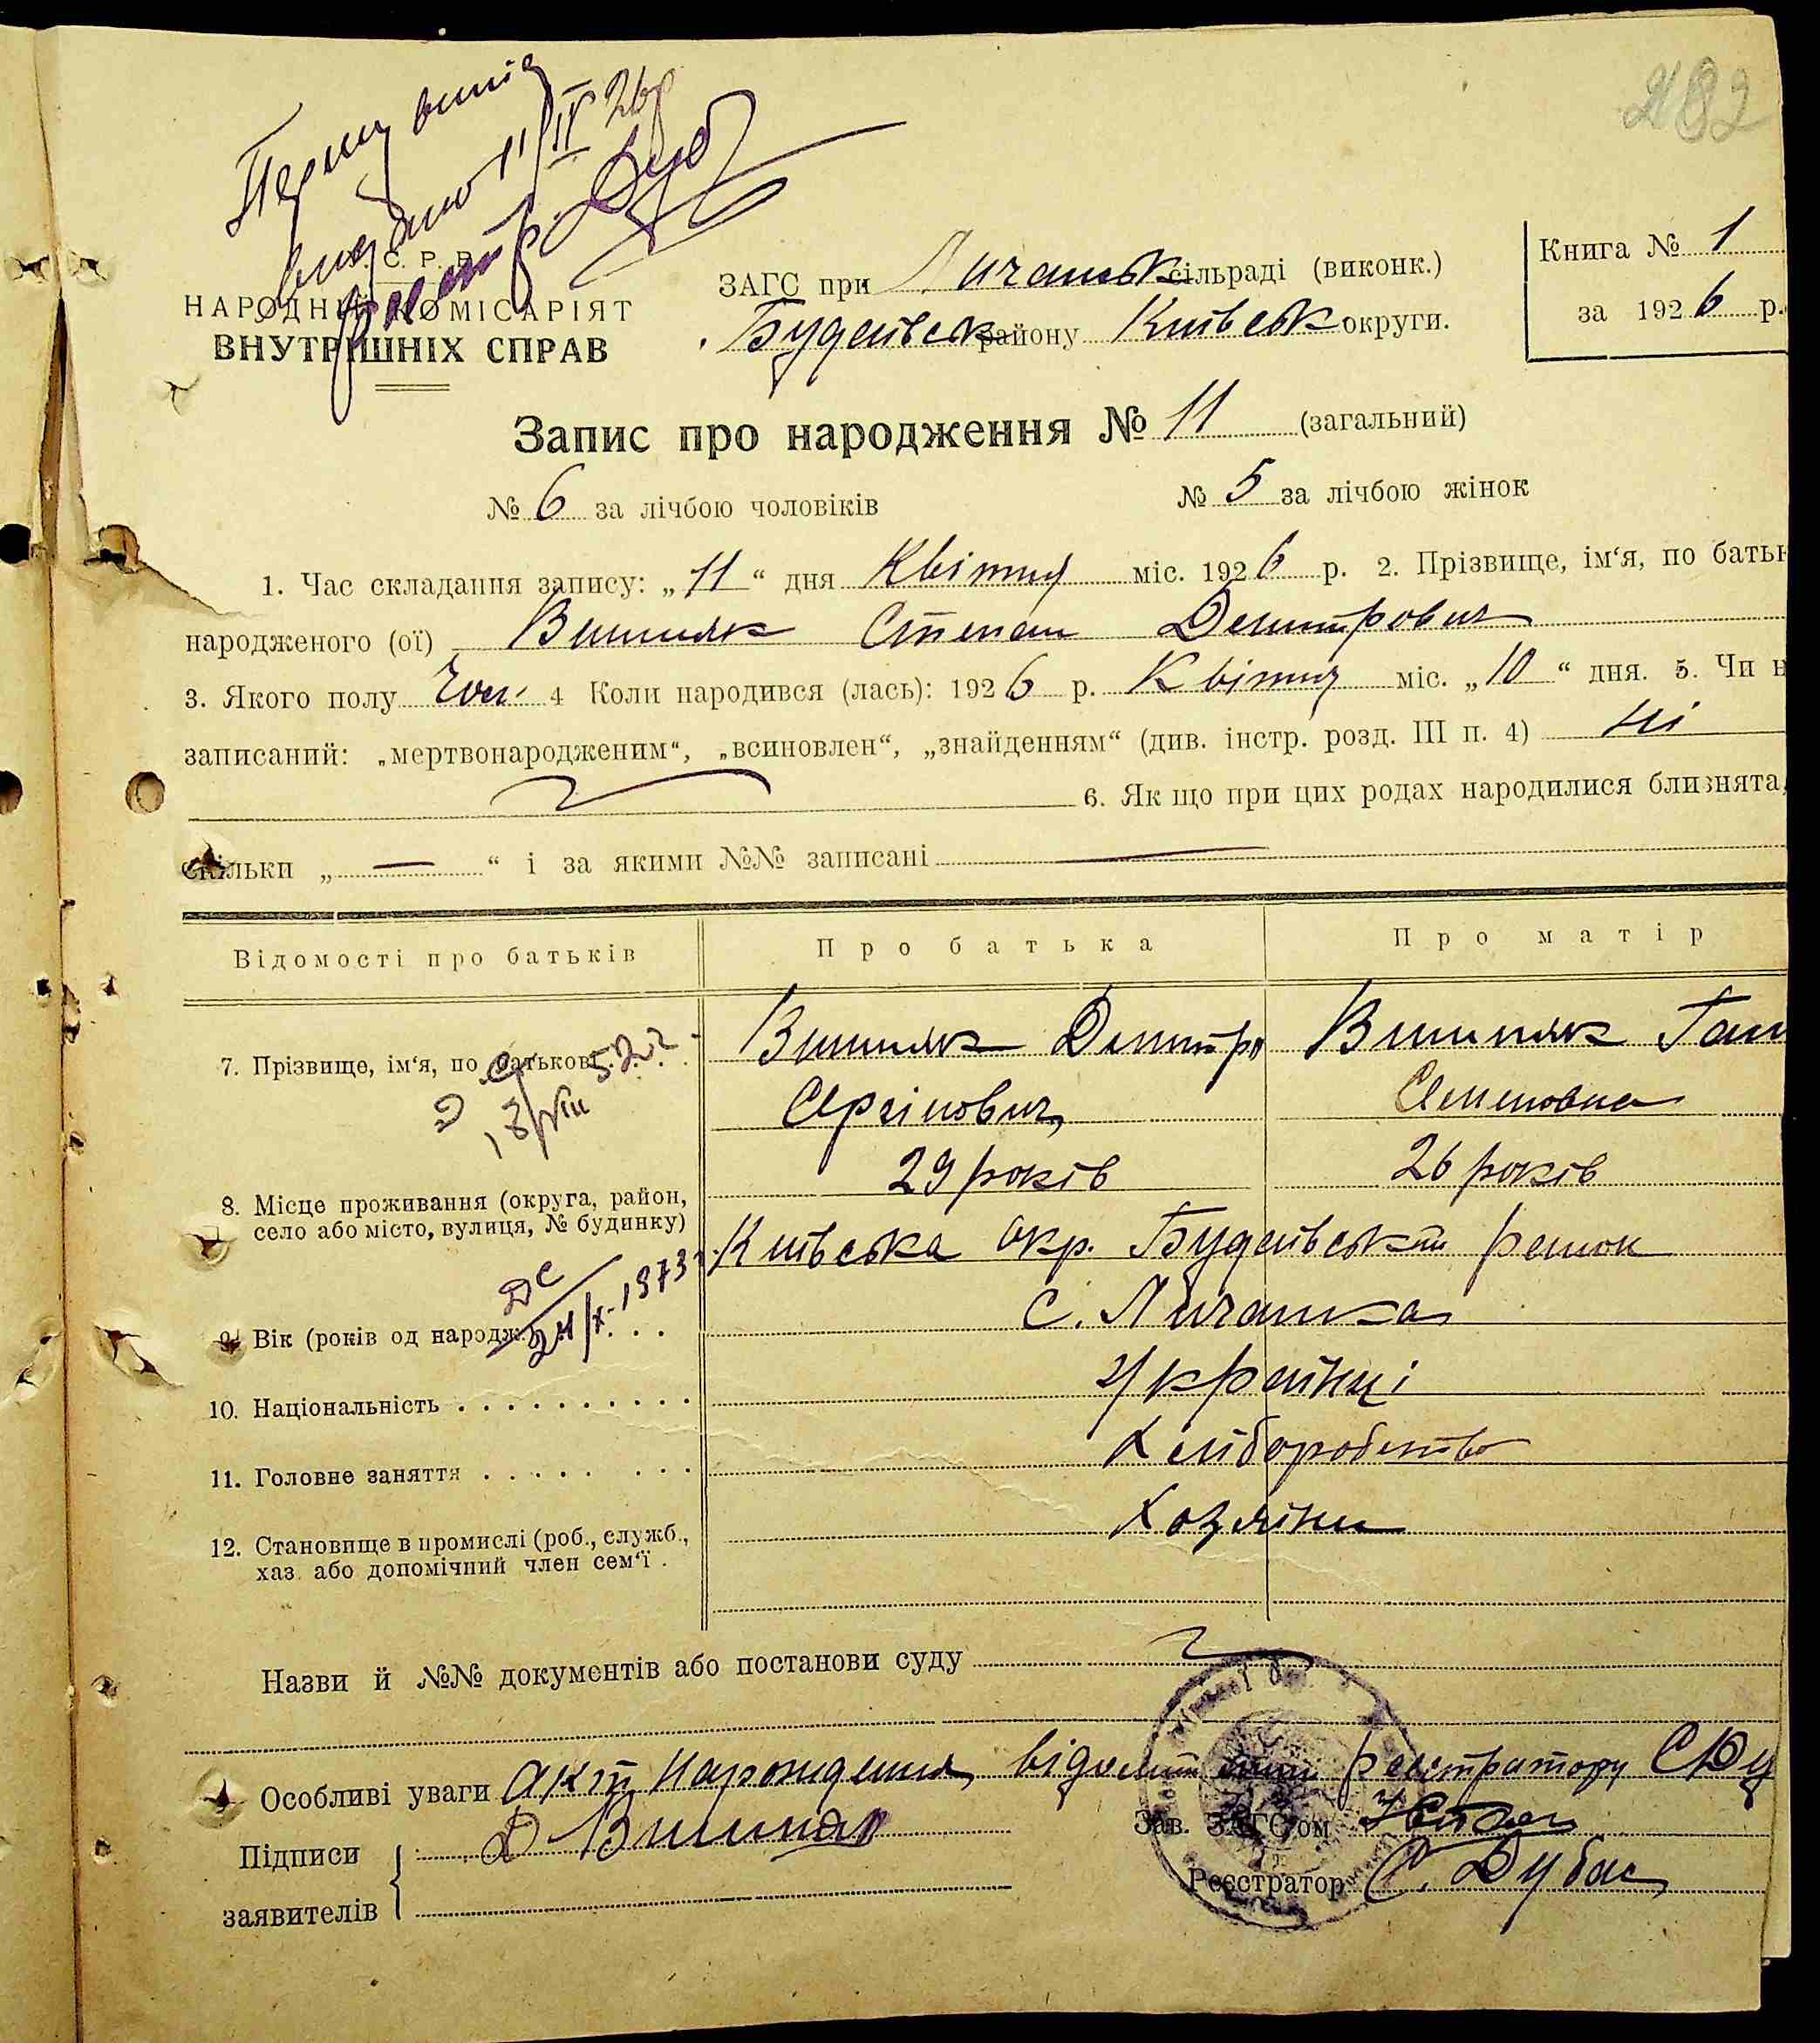 182
Першу випис
видано 11/IV 26 р
С. Р. Р.
НАРОДНИЙ КОМІСАРІЯТ
ВНУТРІШНІХ СПРАВ
ЗАГС при Личанськ сільраді (виконк.)
Будаївськ району Київськ округи.
Книга № 1
за 1926 р.
Запис про народження № 11 (загальний)
№ 6 за лічбою чоловіків № 5 за лічбою жінок
1. Час складання запису: „11“ дня Квітня міс. 1926 р. 2. Прізвище, ім‘я, по батьк
народженого (ої) Вишняк Степан Демитрович
3. Якого полу Чол. 4 Коли народився (лась): 1926 р. Квітня міс. „10“ дня. 5. Чи н
записаний: „мертвонародженим“, „всиновлен“, „знайденням“ (див. інстр. розд. III п. 4) Ні
6. Як що при цих родах народилися близнята,
скільки „ — “ і за якими №№ записані —
Відомості про батьків Про батька Про матір
7. Прізвище, ім‘я, по батькові Вишняк Демитро Вишняк Ган
Сергіїович Семеновна
29 років 26 років
8. Місце проживання (округа, район,
село або місто, вулиця, № будинку)
Київська окр. Будаївський район
с. Личанка
ДС
24/X-1973
9. Вік (років од народж.)
10. Національність . . . . . . . . . . Українці
11. Головне заняття . . . . . . . . Хліборобство
12. Становище в промислі (роб., служб., Хозяїни
хаз. або допомічний член сем‘ї .
Назви й №№ документів або постанови суду
Особливі уваги Акт Народження реєстратору
Підписи Д Вишняк Зав. ЗАГС‘ом
заявителів Реєстратор С. Дубас